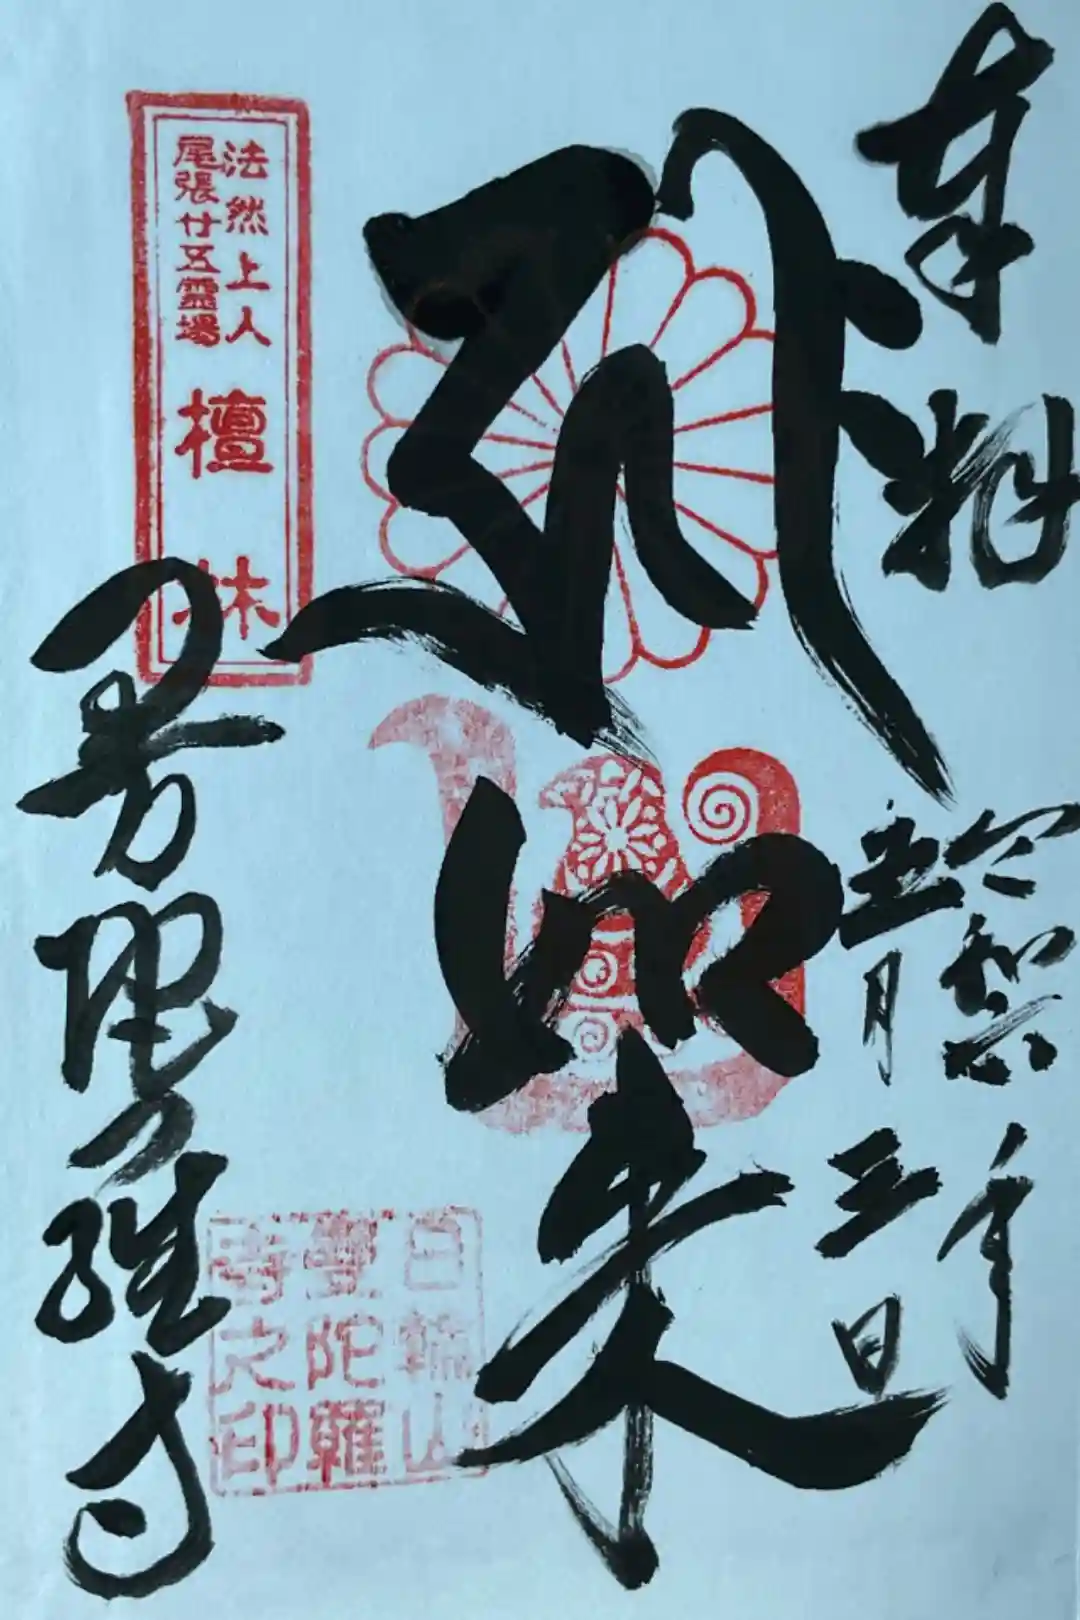 奉拝
令和六年
五月三日
如来
法然上人
尾張廿五霊場
檀林
日輪山
曼陀羅
寺之印
曼陀羅寺